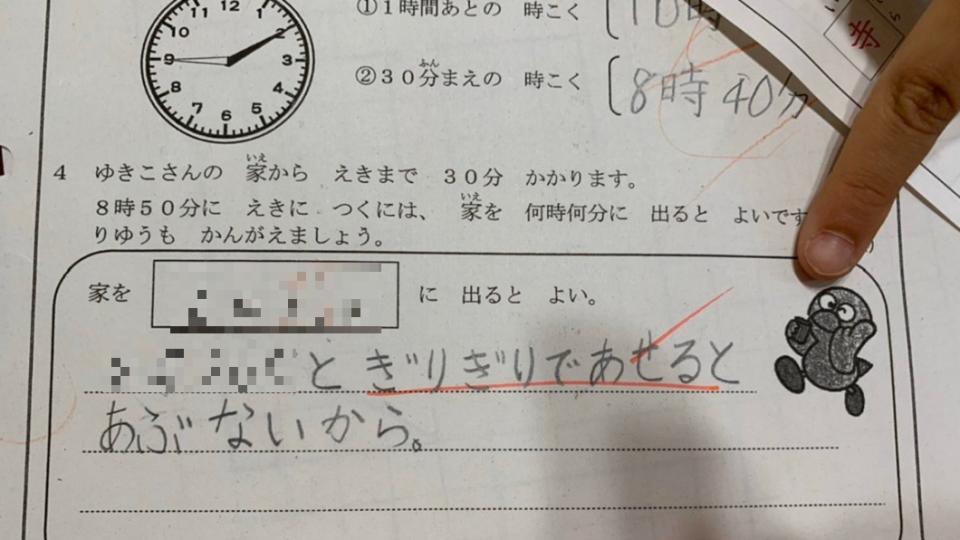 11 12 1
10 2
9 3
8 4
7 6 5
①1時間あとの 時こく
②30分まえの 時こく
ふん
8時40分
いえ
4 ゆきこさんの 家から えきまで 30分 かかります。
いえ
8時50分に えきに つくには、 家を 何時何分に 出ると よいです
りゆうも かんがえましょう。
家を に 出ると よい。
と ぎりぎりであせると
あぶないから。